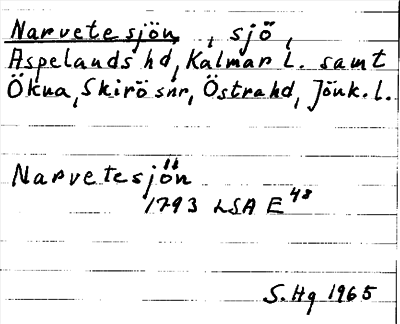 Narvetesjön, sjö,
Aspelands hd, Kalmar l. samt
Ökna, Skirö snr, Östra hd, Jönk. l.
Narvetesjön
1793 LSA E 48
S. Hg 1965